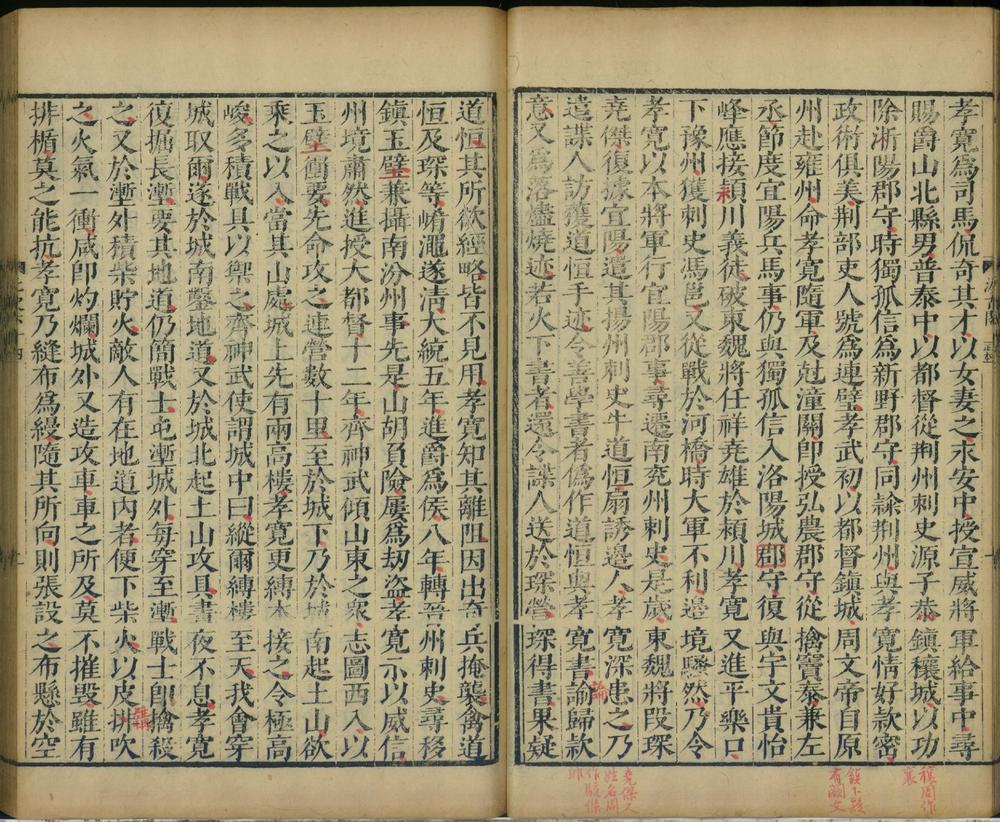 孝寬爲司馬侃奇其才以女妻之永安中授宣威將軍給事中尋
賜爵山北縣男普泰中以都督從荆州刺史源子恭鎮穰城以功
除淅陽郡守時獨孤信爲新野郡守同隸荆州與孝寬情好款密
政術俱美荆部吏人號爲連璧孝武初以都督鎮城周文帝自原
州赴雍州命孝寬隨軍及尅潼關卽授弘農郡守從擒竇泰兼左
丞節度宜陽兵馬事仍與獨孤信入洛陽城郡守復與宇文貴怡
峰應接潁川義徒破東魏將任祥尭雄於潁川孝寬又進平樂口
下豫州獲刺史馮邕又從戰於河橋時大軍不利邊境騷然乃令
孝寬以本將軍行宜陽郡事尋遷南兖州刺史是歲東魏將段琛
尭傑復據宜陽遣其揚州刺史牛道恒扇誘邊人孝寬深患之乃
遣諜人訪獲道恒手迹令善學書者僞作道恒與孝寬書論歸款
意又爲落燼燒迹若火下書者還令諜人送於琛營琛得書果疑
道恒其所欲經略皆不見用孝寬知其離阻因出奇兵掩襲禽道
恒及琛等崤澠遂淸大統五年進爵爲侯八年轉晉州刺史尋移
鎮玉壁兼攝南汾州事先是山胡負險屢爲劫盜孝寬示以威信
州境肅然進授大都督十二年齊神武傾山東之衆志圖西入以
玉壁衝要先命攻之連營數十里至於城下乃於城南起土山欲
乘之以入當其山處城上先有兩高樓孝寬更縛木接之令極高
峻多積戰具以禦之齊神武使謂城中曰縱爾縛樓至天我會穿
城取爾遂於城南鑿地道又於城北起土山攻具晝夜不息孝寬
復掘長塹要其地道仍簡戰士屯塹城外每穿至塹戰士卽擒殺
之又於塹外積柴貯火敵人有在地道內者便下柴火以皮排吹
之火氣一衝咸卽灼爛城外又造攻車車之所及莫不摧毀雖有
排楯莫之能抗孝寬乃縫布爲縵隨其所向則張設之布懸於空
穰周作
襄
鎮下疑
有闕文
尭傑人
姓名周
作堯傑